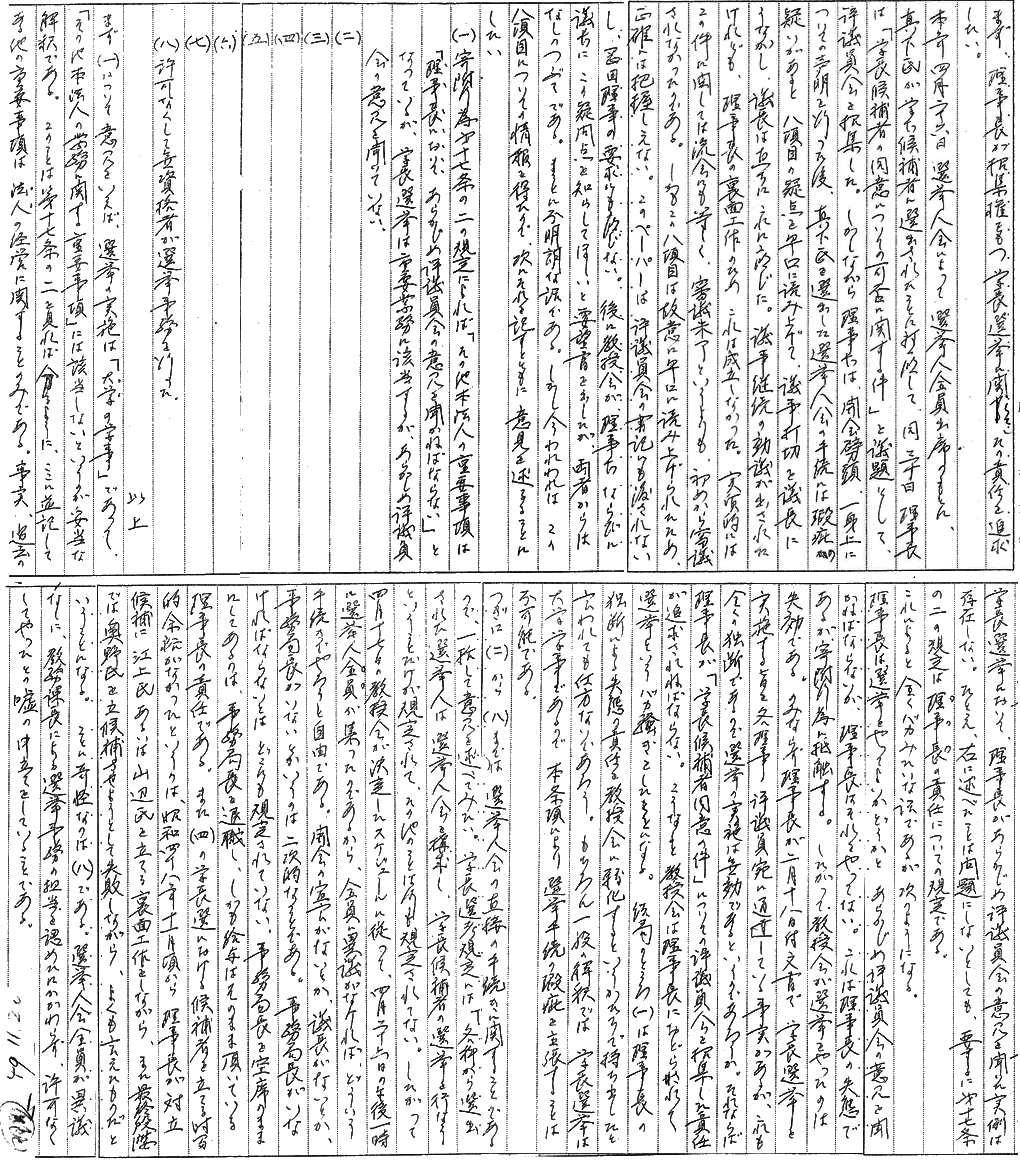 まず、理事長が招集権をもつ学長選挙に関する その責任を追求
したい。
本年四月二十六日 選挙人会によって 選挙人全員出席のもとに
真下氏が学長候補者に選出されたのに対して、同 三十日 理事長
は「学長候補者の同意についての可否に関する件」を議題として、
評議員会を招集した。しかしながら 理事長は、開会劈頭、一身上に
ついての声明を行った後、真下氏を選出した選挙人会の手続には瑕疵の
疑いがあると 八項目の疑点を早口に読み上げて、議事打切を議長に
うながし、議長は直ちにこれに応じた。議事継続の動議が出された
けれども、理事長の裏面工作のため これは成立しなかった。実質的には
この件に関しては流会にも等しく、審議未了というよりも 初めから審議
されなかったのである。しかもこの八項目は故意に早口に読み上げられたため、
正確には把握しえない。このペーパーは 評議員会の書記にも渡されない
し、理事の要求にも応じない。後に教授会が理事長ならびに
議長にこの疑問点を知らしてほしいと要望書を出したが 両者からは
なしのつぶてである。まことに不明朗な話である。しかし今われわれは この
八項目についての情報を得たので、次にそれを記すとともに 意見を述ることに
したい
(一) 寄附行為第十七条の二の規定によれば、「その他本法人の重要事項は
理事長において、あらかじめ評議員会の意見を聞かねばならない」と
なっているが、学長選挙は重要業務に該当するが、あらかじめ評議員
会の意見を聞いていない。
(二)
(三)
(四)
(五)
(六)
(七)
(八) 許可なくして無資格者が選挙事務を行った
以上
まず(一)について意見をいえば、選挙の実施は「大学の学事」であって、
「その他本法人の業務に関する重要事項」には該当しないというのが妥当な
解釈である。このことは第十七条の二を見れば分るように、ここに並記して
ある他の重要事項は 法人の経営に関することのみである。事実、過去の
学長選挙において、理事長があらかじめ評議員会の意見を聞いた実例は
存在しない。たとえ、右に述べたことは問題にしないとしても、要するに第十七条
の二の規定は理事長の責任についての規定である。
これによると 全くバカみたいな話であるが次のようになる。
理事長は選挙をやってよいかどうかを あらかじめ評議員会の意見を聞
かねばならないが、理事長はそれをやってない。これは理事長の失態で
あるが寄附行為に抵触する。したがって教授会が選挙をやったのは
失効である。のみならず理事長が二月十八日付文書で 学長選挙を
実施する旨を各理事、評議員宛に通達している事実があるが、これも
全くの独断であるので選挙の実施は無効であるというのであろうか。それならば
理事長が「学長候補者同意の件」についての評議員会を招集した責任
が追求されねばならない。こうなると 教授会は理事長におどらされて
選挙というバカ騒ぎをしたことになる。結局のところ(一)は理事長の
独断による失態の責任を教授会に転化するというかたちで持ち出したと
言われても仕方ないであろう。もちろん一般の解釈では 学長選挙は
大学学事であるので 本条項により 選挙手続の瑕疵を主張することは
不可能である。
つぎに(二)から(八)までは 選挙人会の直接の手続きに関することである
ので、一括して意見を述べてみたい。学長選考規定には「各部から選出
された選挙人は 選挙人会を構成し、学長候補者の選挙を行なう」
ということだけが規定されて、その他のことは何も規定されてない。したがって
四月十七日の教授会が決定したスケジュールに従って、四月二十六日の午後一時
に選挙人全員が集ったのであるから、全員に異議がなければ、どういう
手続きでやろうと自由である。開会の宣言がないとか、議長がないとか、
事務局長がいないとかいうのは二次的なことである。事務局長がいな
ければならないとは どこにも規定されていない。事務局長を空席のまま
にしてあるのは、事務局長を退職し、しかも給与はそのまま頂いている
理事長の責任である。また(四)の学長選における候補者を立てる時間
的余裕がなかったというのは、昭和四十八年十一月頃から 理事長が対立
候補に江上氏 あるいは山辺氏を立てる裏面工作をしながら、また最終段階
では奥野氏を立候補させようとして失敗しながら、よくも言えたものだと
いうことになる。ことに奇怪なのは(八)である。選挙人会全員が異議
なしに、教務課長による選挙事務の担当を認めたにかかわらず、許可なく
してやったとの嘘の申立をしていることである。